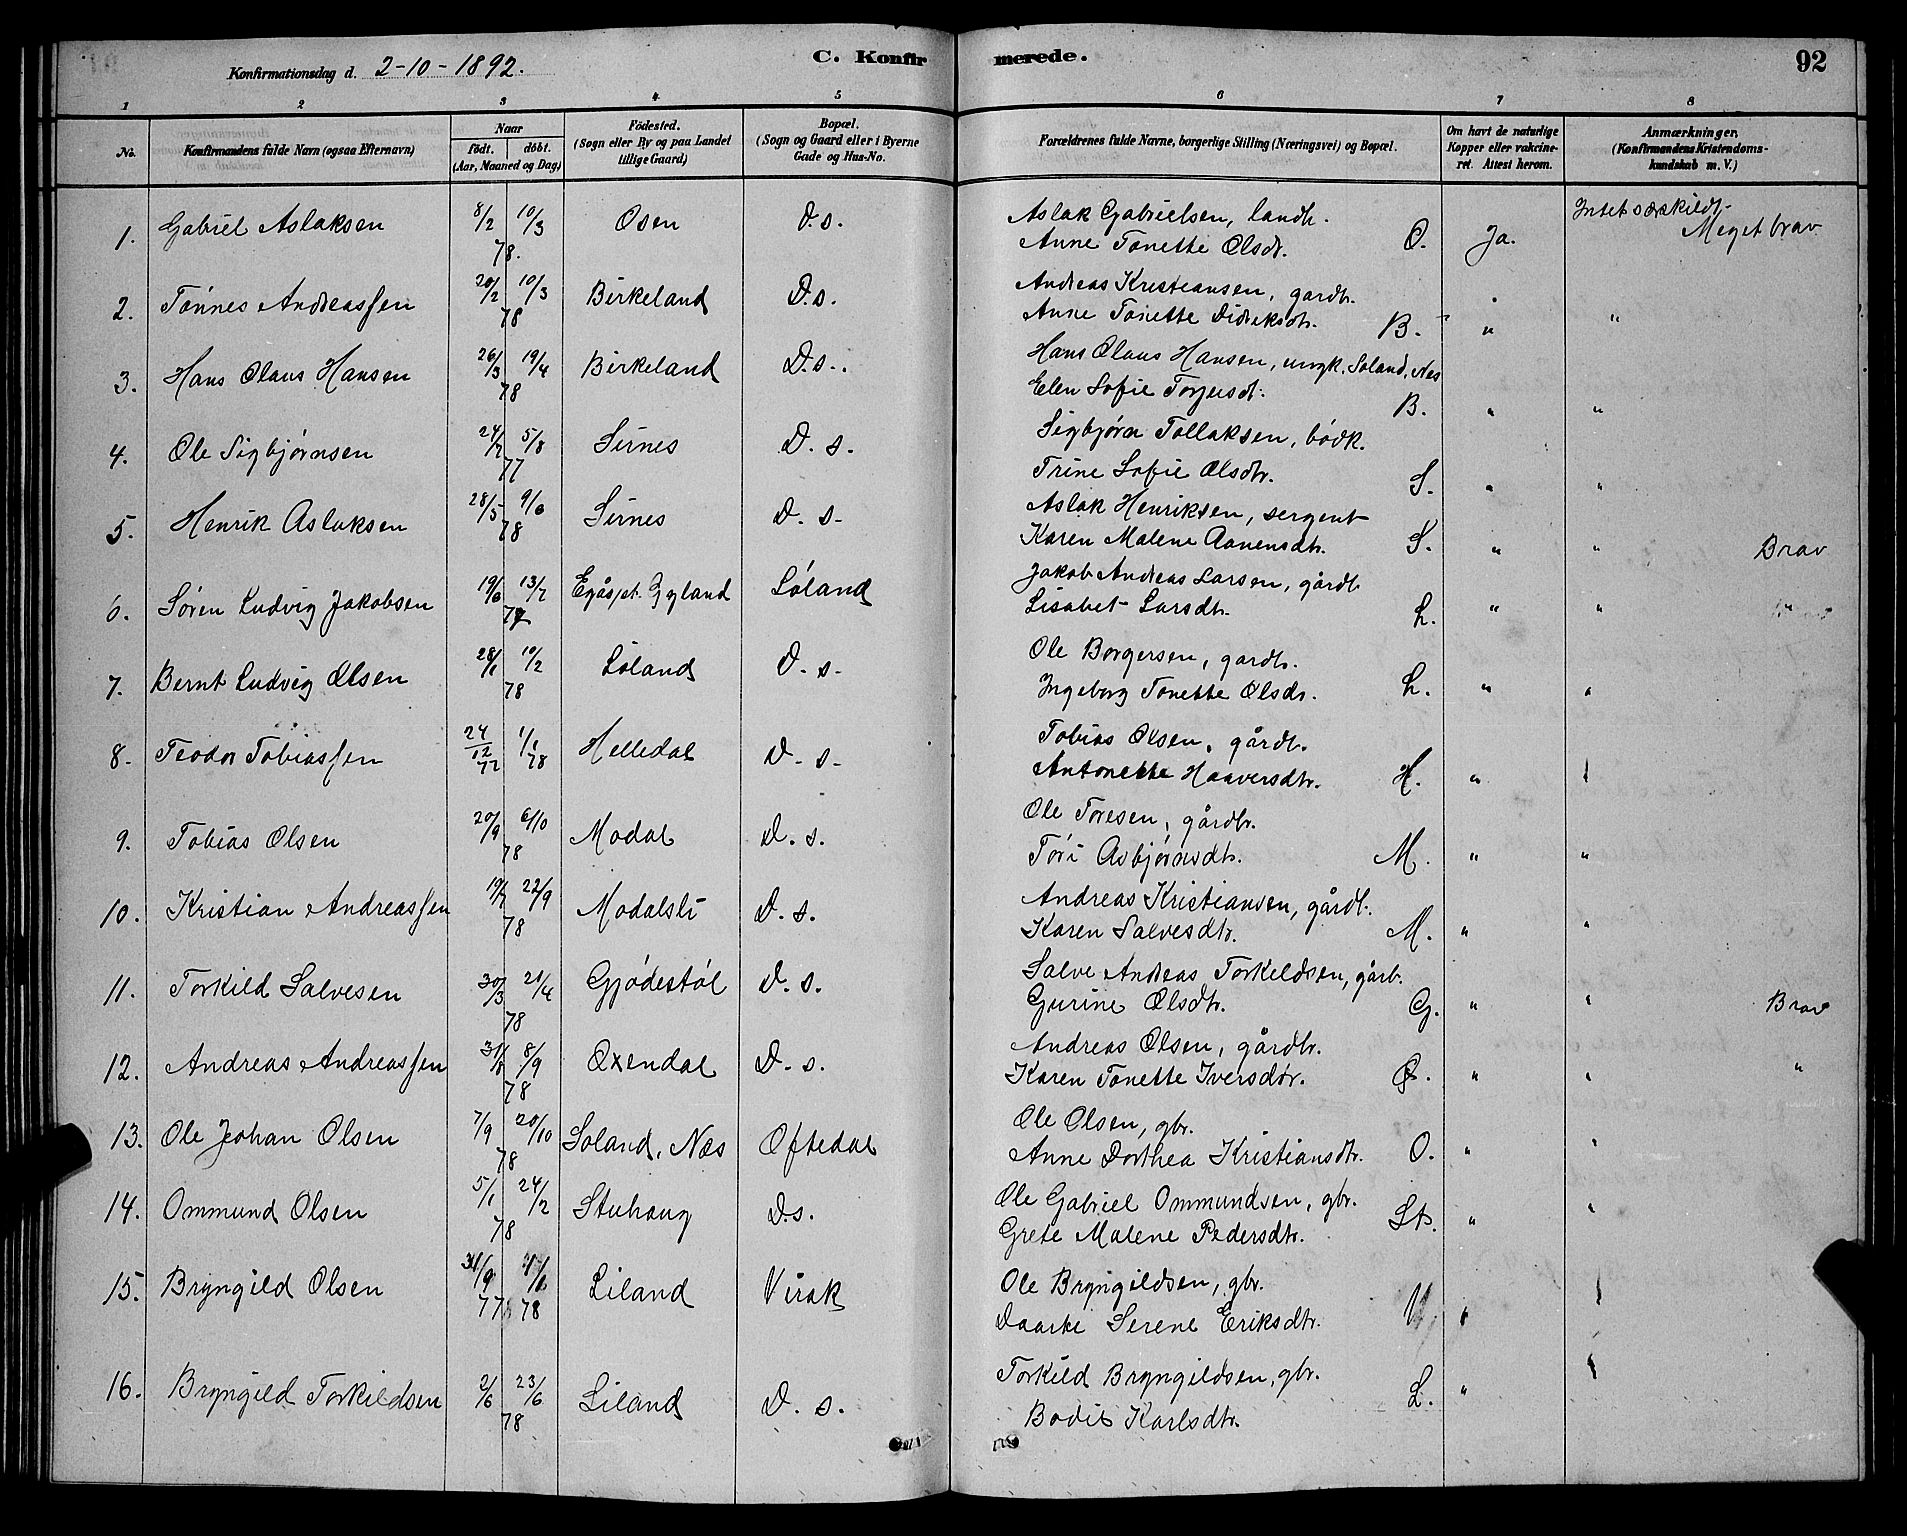 Konfirmationsdag d. 2-10-1892. C. Konfirmerede. 92
1 2 3 4 5 6 7 8
No. Konfirmandens fulde Navn (ogsaa Efternavn) Naar Født. døbt. (Aar, Maaned og Dag) Fødested. (Sogn eller By og paa Landet tillige Gaard) Bopæl. (Sogn og Gaard eller i Byerne Gade og Hus-No. Forældrenes fulde Navne, borgerlige Stilling (Næringsvei) og Bopæl. Om havt de naturlige Kopper eller vakcineret. Attest herom. Anmærkninger, (Konfirmandens Kristendomskundskab m. V.)
1. Gabriel Aslaksen 8/2 10/3 78. Osen D.s. Aslak Gabrielsen, landh. Intet særskildt.
Anne Tonette Olsdr. O. Ja. Meget brav
2. Tønnes Andreassen 20/2 10/3 78 Birkeland D.s. Andreas Kristiansen, gardbr.
Anne Tonette Didriksdtr. B. " "
3. Hans Olaus Hansen 26/3 19/4 78 Birkeland D.s. Hans Olaus Hansen, ungk. Soland, Nes
Elen Sofie Torjusdt. B. " "
4. Ole Sigbjørnsen 24/7 5/8 77 Sirnes D. s. Sigbjørn Tollaksen, bødk.
Trine Sofie Olsdtr. S. " "
5. Henrik Aslaksen 28/5 9/6 78 Sirnes D. s. Aslak Henriksen, sergent
Karen Malene Aanensdtr. S. " " Brav
6. Søren Ludvig Jakobsen 19/6 13/7 Gyland Løland Jakob Andreas Larsen, gårdb
Lisabet Larsdtr. L. " "
7. Bernt Ludvig Olsen 28/1 10/2 78 Løland D. s. Ole Borgersen, gardbr.
Ingeborg Tonette Olsdr. L. " "
8. Teodor Tobiassen 24/12 77 1/1 78 Helledal D. s. Tobias Olsen, gårdb.
Antonette Haaversdtr. H. " "
9. Tobias Olsen 20/9 6/10 78 Modal D. s. Ole Toresen, gårdbr.
Tøri Asbjørnsdtr. M. " "
10. Kristian Andreassen 22/9 78 Modalsli D. s. Andreas Kristiansen, gårdb.
Karen Salvesdtr. M. " "
11. Torkild Salvesen 30/3 21/4 78 Gjødestøl D. s. Salve Andreas Torkeldsen, gårb.
Gurine Olsdtr. G. " " Brav
12. Andreas Andreassen 31/8 8/9 78 Oxendal D. s. Andreas Olsen, gårdbr.
Karen Tonette Iversdtr. O. " " "
13. Ole Johan Olsen 7/9 20/10 78 Soland, Næs Oftedal Ole Olsen, gbr.
Anne Dorthea Kristiansdtr. O. " "
14. Ommund Olsen 5/1 24/2 78 Stuhaug D.s. Ole Gabriel Ommundsen, gbr.
Grete Malene Pedersdtr. St. " "
15. Bryngild Olsen 77 78 Liland Virak Ole Bryngildsen, gbr.
Daarte Serene Eriksdtr. V " "
16. Bryngild Torkildsen 2/6 23/6 78 Liland D. s. Torkild Bryngildsen, gbr.
Bodil Karlsdtr. L. " "